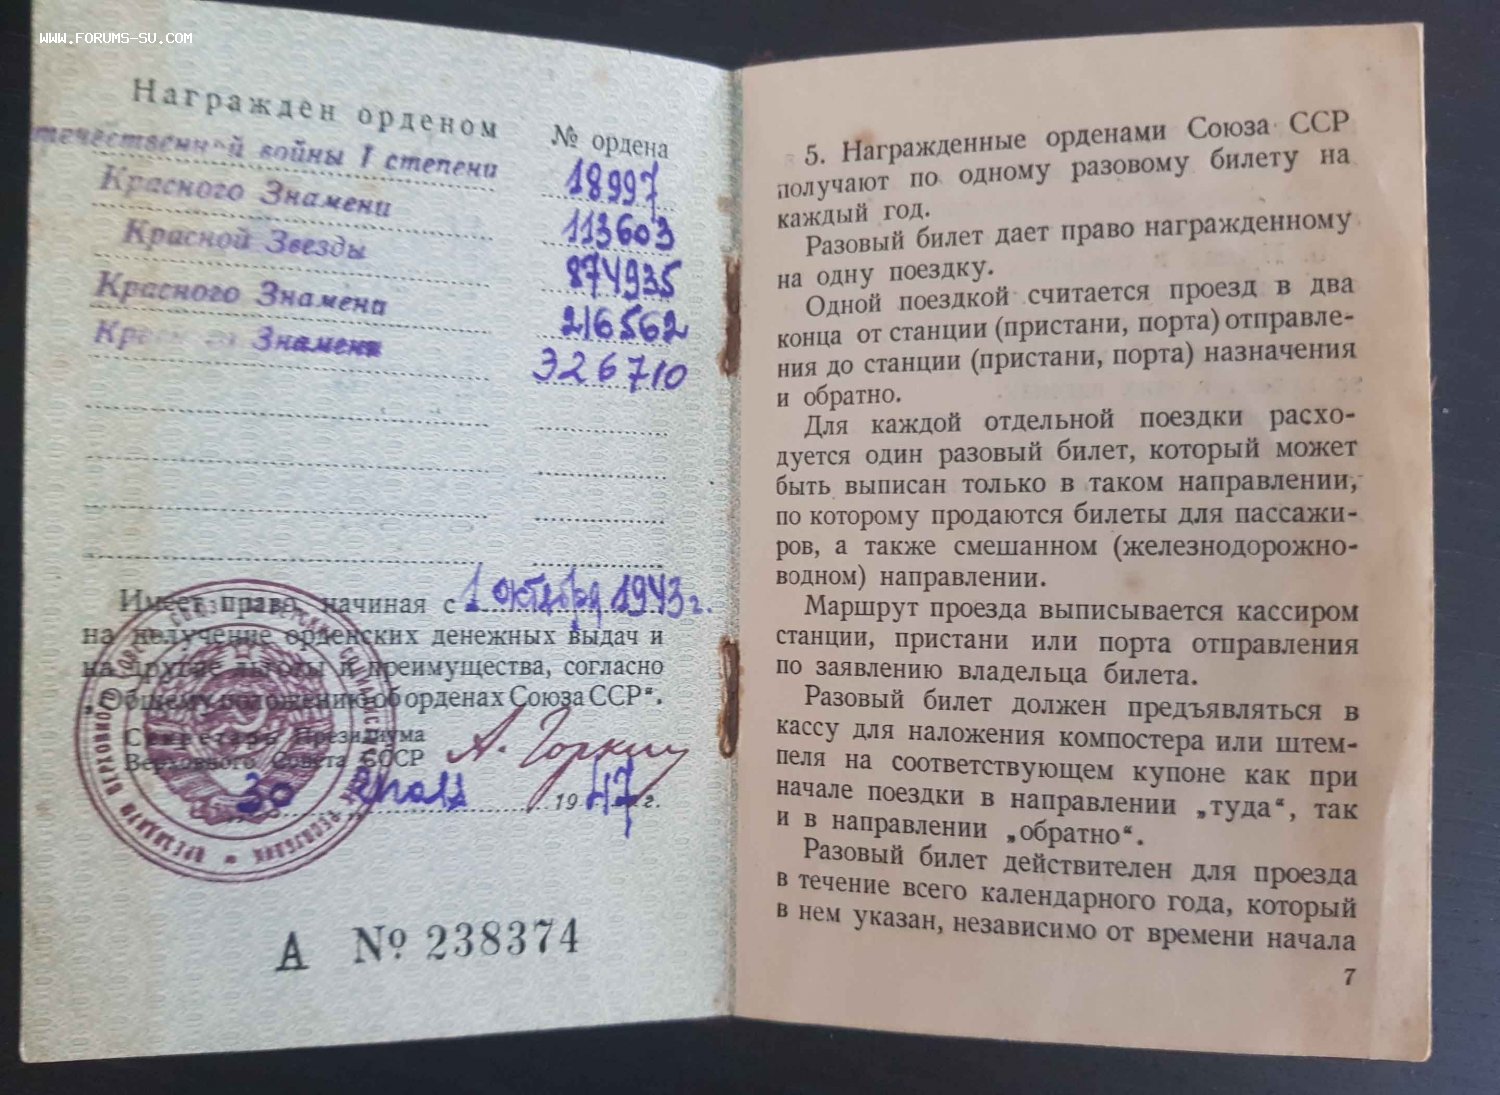 WWW.FORUMS-SU.COM
Награжден орденом № ордена
течественной войны I степени 18997
Красного Знамени 113603
Красной Звезды 874935
Красного Знамена 216562
Знамени 326710
Имеет право, начиная с 1 октября 1943 г.
на получение орденских денежных выдач и
на другие льготы и преимущества, согласно
„Общему положению об орденах Союза ССР“.
Секретарь Президиума
Верховного Совета СССР А. Горкин
30 июля 1947 г.
А № 238374
5. Награжденные орденами Союза ССР
получают по одному разовому билету на
каждый год.
Разовый билет дает право награжденному
на одну поездку.
Одной поездкой считается проезд в два
конца от станции (пристани, порта) отправле-
ния до станции (пристани, порта) назначения
и обратно.
Для каждой отдельной поездки расхо-
дуется один разовый билет, который может
быть выписан только в таком направлении,
по которому продаются билеты для пассажи-
ров, а также смешанном (железнодорожно-
водном) направлении.
Маршрут проезда выписывается кассиром
станции, пристани или порта отправления
по заявлению владельца билета.
Разовый билет должен предъявляться в
кассу для наложения компостера или штем-
пеля на соответствующем купоне как при
начале поездки в направлении „туда“, так
и в направлении „обратно“.
Разовый билет действителен для проезда
в течение всего календарного года, который
в нем указан, независимо от времени начала
7